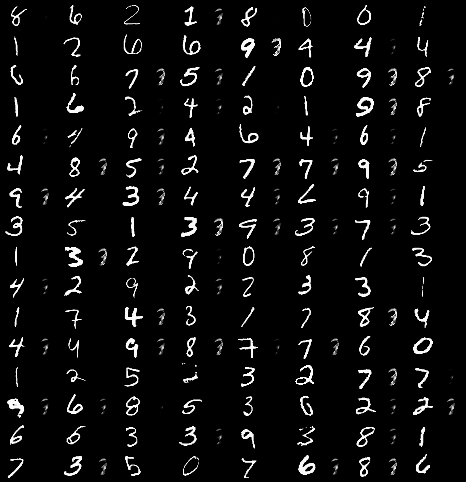 8 6 2 1 8 0 0 1
1 2 6 6 9 4 4 4
6 6 7 5 1 0 9 8
1 6 2 4 2 1 9 8
6 4 9 4 6 4 6 1
4 8 5 2 7 7 9 5
9 4 3 4 4 6 9 1
3 5 1 3 9 3 7 3
1 3 2 9 0 8 1 3
4 2 9 2 2 3 3 1
1 7 4 3 1 7 8 4
4 4 9 8 7 7 6 0
1 2 5 3 2 7 7
9 6 8 5 3 6 2 2
6 6 3 3 9 3 8 1
7 3 5 0 7 6 8 6